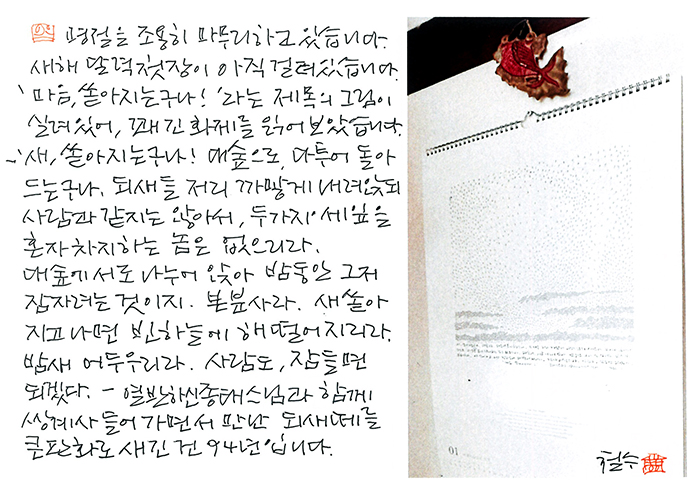 명절을 조용히 마무리하고 있습니다.
새해 달력 첫장이 아직 걸려있습니다.
'마음, 쏟아지는구나!'라는 제목의 그림이
실려있어, 꽤 긴 화제를 읽어보았습니다.
-'새, 쏟아지는구나! 대숲으로, 다투어 돌아
드는구나. 되새들 저리 까맣게 내려앉되
사람과 같지는 않아서, 두가지 세잎을
혼자 차지하는 놈은 없으리라.
대숲에 서로 나누어 앉아 밤동안 그저
잠자려는 것이지. 본분사라. 새 쏟아
지고 나면 빈하늘에 해 떨어지리라.
밤새 어두우리라. 사람도, 잠들면
되겠다. - 열반하신 종태스님과 함께
쌍계사 들어가면서 만난 되새떼를
큰판화로 새긴 건 94년입니다.
01
철수